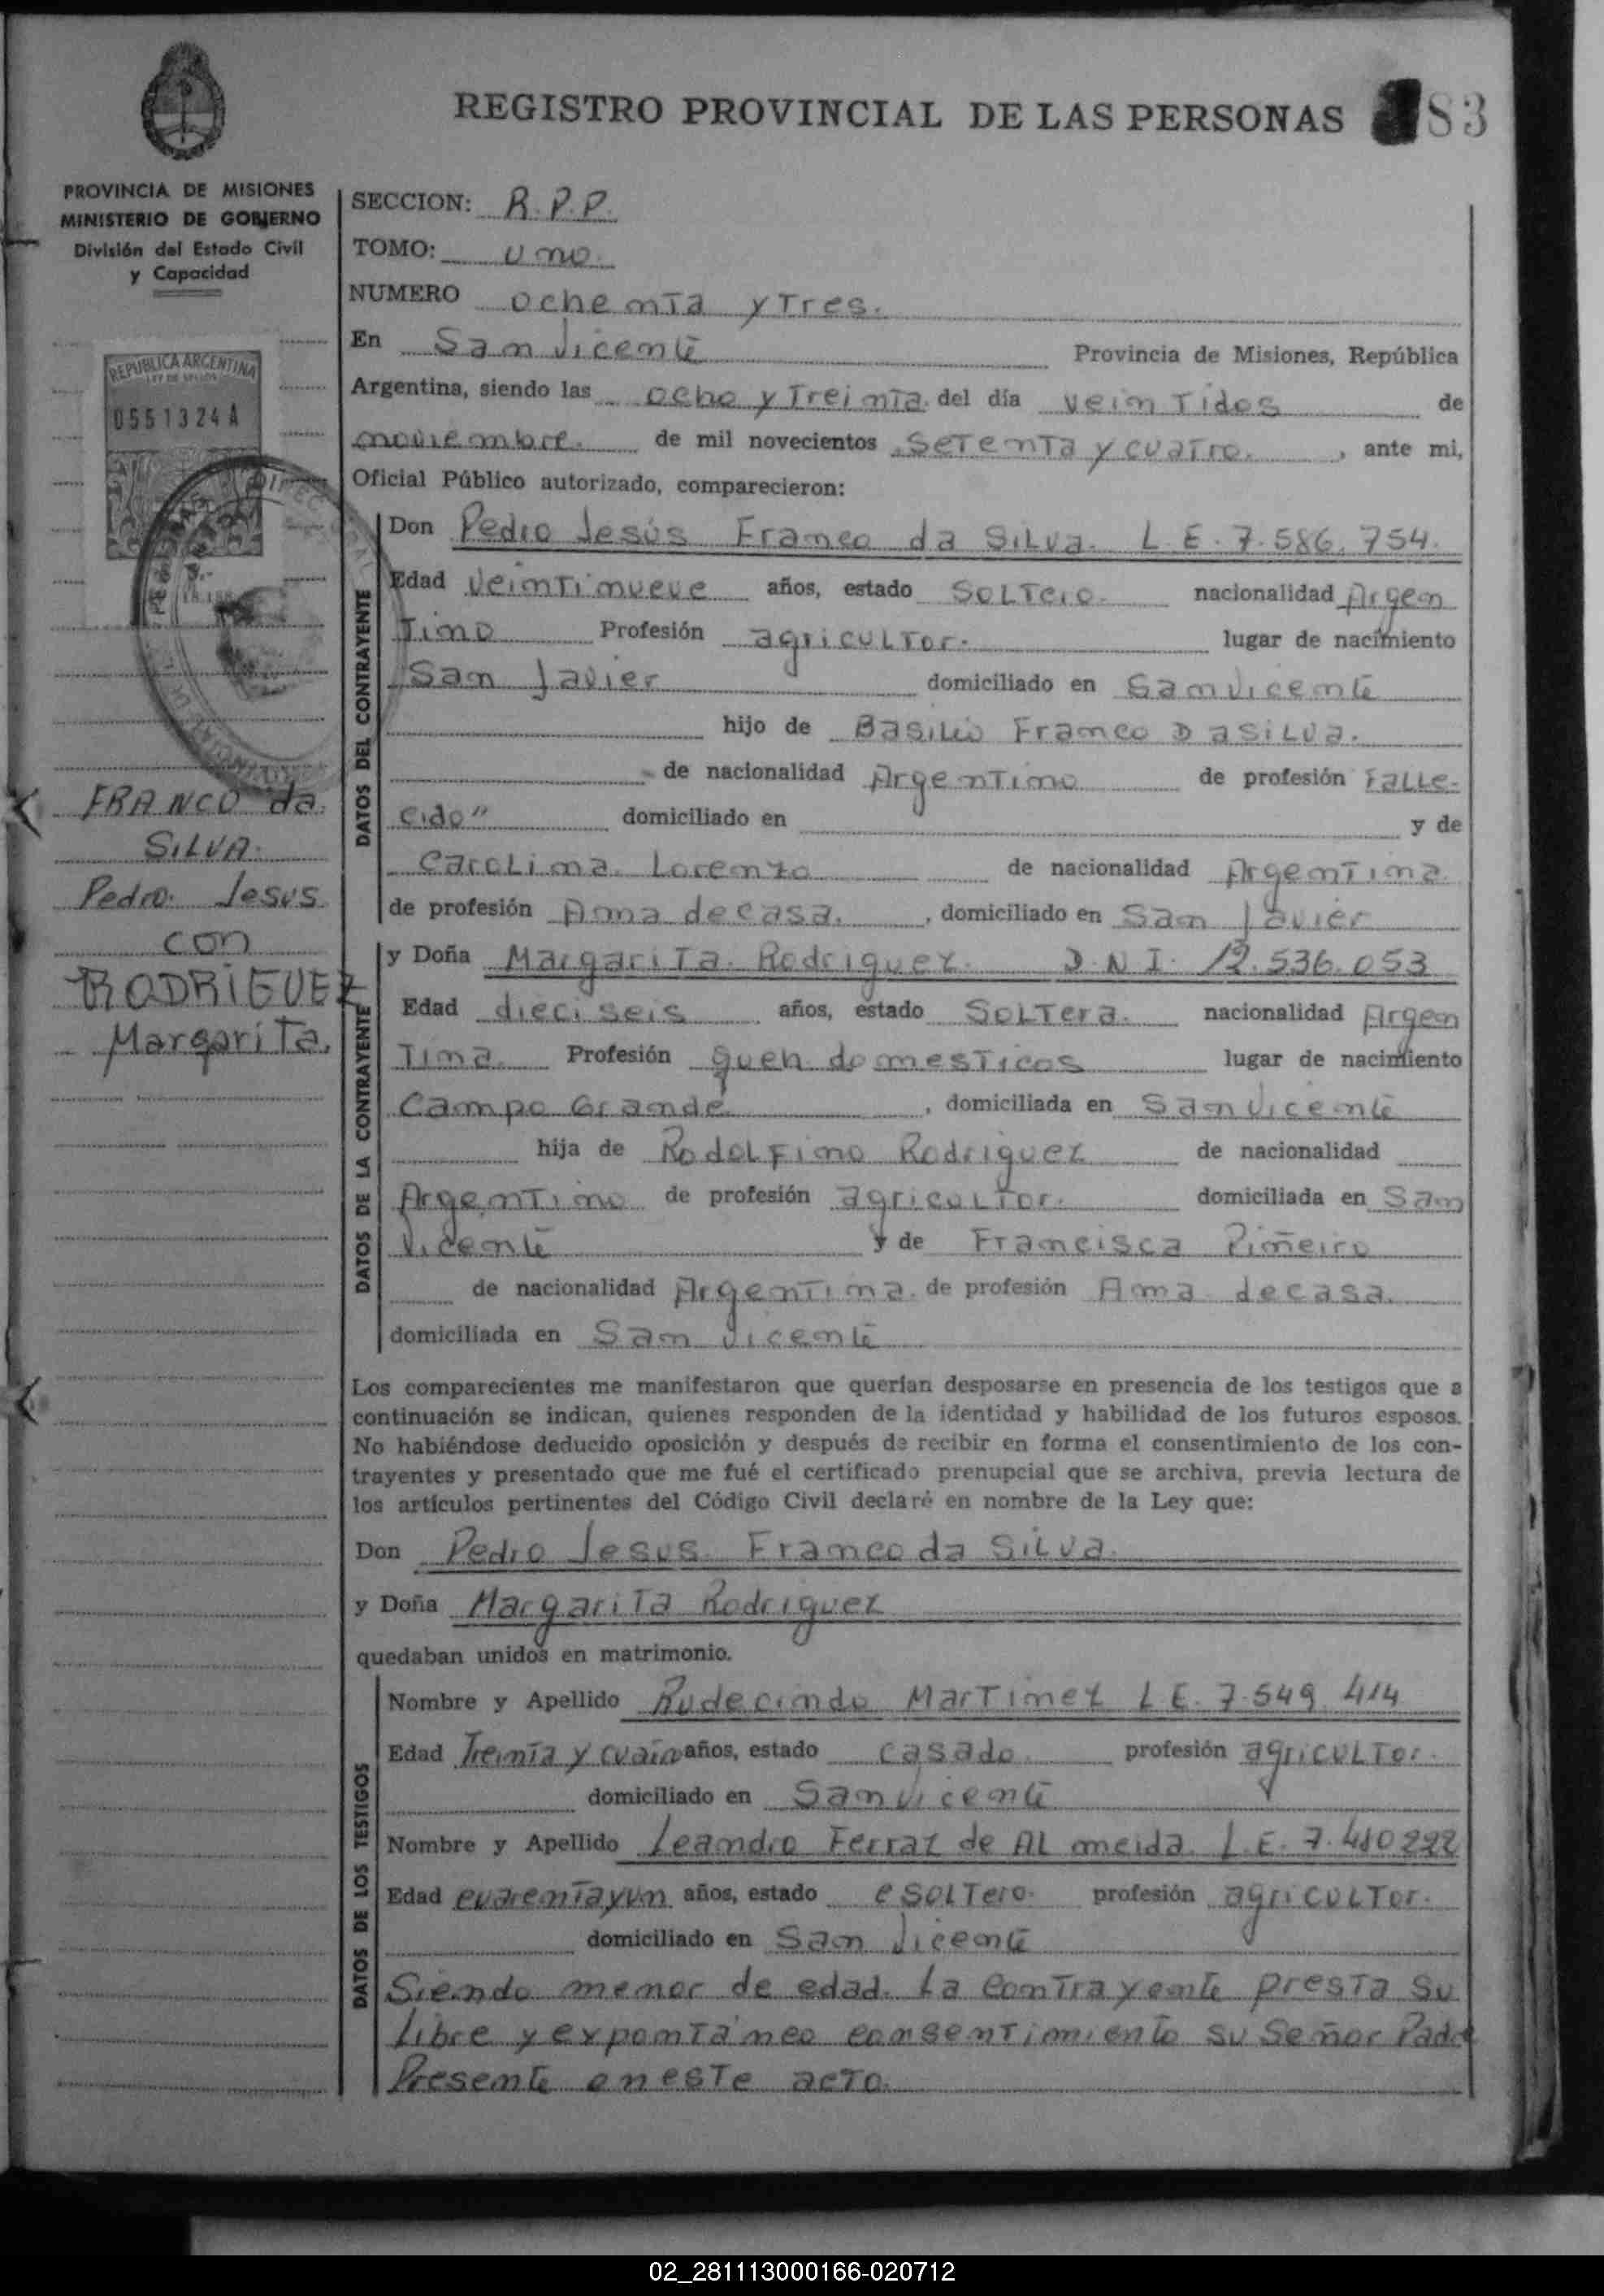 REGISTRO PROVINCIAL DE LAS PERSONAS 83
PROVINCIA DE MISIONES
MINISTERIO DE GOBIERNO
División del Estado Civil
y Capacidad
REPUBLICA ARGENTINA
LEY DE SELLOS
0551324 A
FRANCO da
SILVA.
Pedro. Jesus
con
RODRIGUEZ
Margarita.
SECCION: R.P.P.
TOMO: Uno.
NUMERO ochenta y Tres.
En San Vicente Provincia de Misiones, República
Argentina, siendo las ocho y Treinta. del día veintidos de
noviembre. de mil novecientos setenta y cuatro. , ante mi,
Oficial Público autorizado, comparecieron:
DATOS DEL CONTRAYENTE
Don Pedro Jesús Franco da Silva. L.E. 7.586.754.
Edad veintinueve años, estado Soltero. nacionalidad Argen
Tino Profesión agricultor. lugar de nacimiento
San Javier domiciliado en San Vicente
hijo de Basilio Franco Dasilva.
de nacionalidad Argentino de profesión Falle-
cido" domiciliado en y de
Carolina. Lorenzo de nacionalidad Argentina.
de profesión Ama de casa. , domiciliado en San Javier
DATOS DE LA CONTRAYENTE
y Doña Margarita. Rodriguez. D.N.I. 12.536.053
Edad dieciseis años, estado Soltera. nacionalidad Argen
Tina. Profesión queh. domesticos lugar de nacimiento
Campo Grande , domiciliada en San Vicente
hija de Rodolfino Rodriguez de nacionalidad
Argentino de profesión agricultor. domiciliada en San
Vicente y de Francisca Piñeiro
de nacionalidad Argentina. de profesión Ama de casa.
domiciliada en San Vicente
Los comparecientes me manifestaron que querían desposarse en presencia de los testigos que a
continuación se indican, quienes responden de la identidad y habilidad de los futuros esposos.
No habiéndose deducido oposición y después de recibir en forma el consentimiento de los con-
trayentes y presentado que me fué el certificado prenupcial que se archiva, previa lectura de
los artículos pertinentes del Código Civil declaré en nombre de la Ley que:
Don Pedro Jesus. Franco da Silva.
y Doña Margarita Rodriguez
quedaban unidos en matrimonio.
DATOS DE LOS TESTIGOS
Nombre y Apellido Rudecindo Martinez L.E. 7.549.414
Edad Treinta y cuatro años, estado casado. profesión agricultor.
domiciliado en San Vicente
Nombre y Apellido Leandro Ferraz de Al meida. L.E. 7.410222
Edad cuarenta y un años, estado esoltero. profesión agricultor.
domiciliado en San Vicente
Siendo menor de edad. La contrayente presta su
Libre y expontáneo consentimiento su Señor Padre
Presente en este acto.
02_281113000166-020712